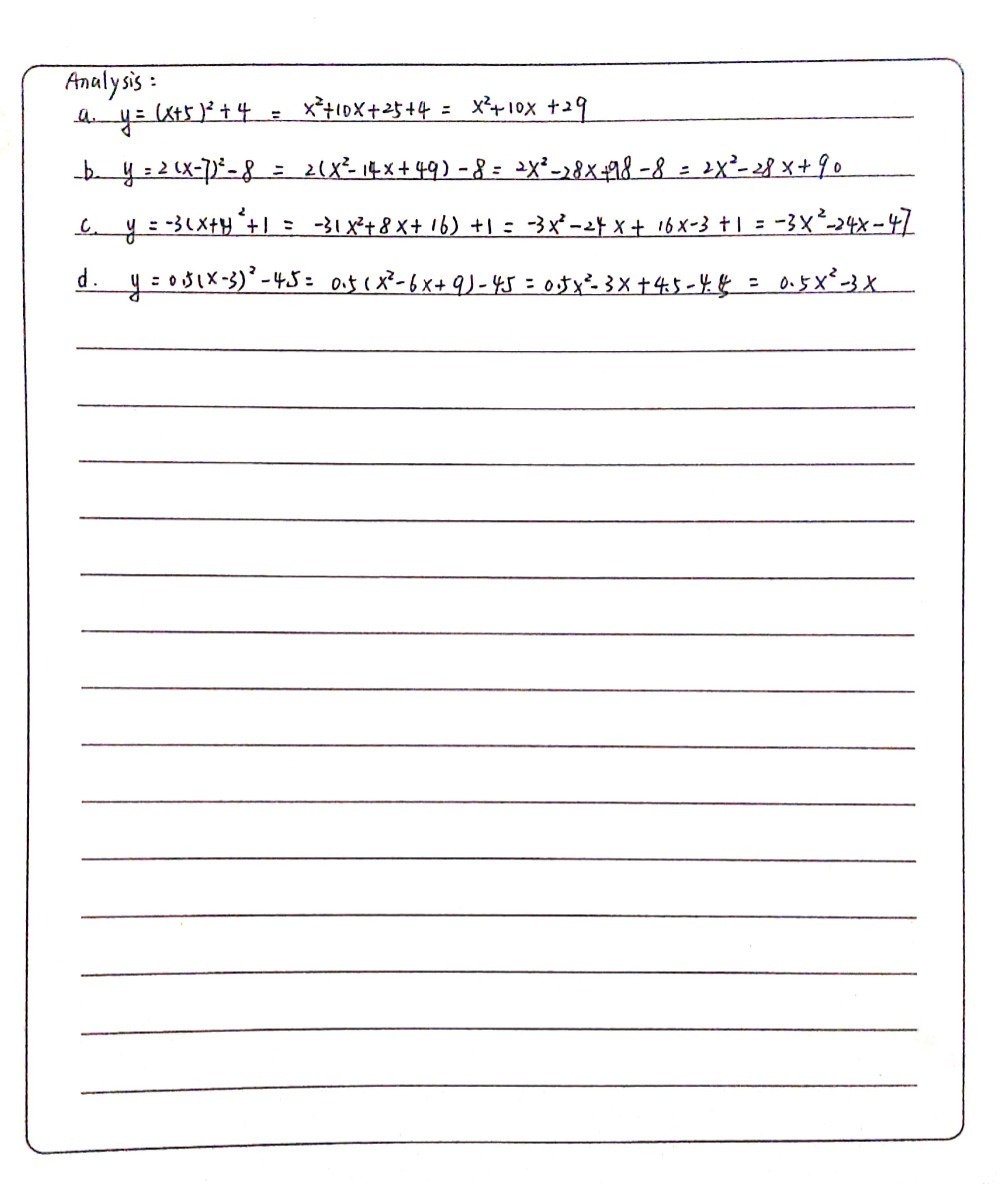 Analysis:
a. y = (x+5)² + 4 = x²+10x+25+4 = x²+10x+29
b. y = 2(x-7)² - 8 = 2(x²-14x+49) - 8 = 2x²-28x+98-8 = 2x²-28x+90
c. y = -3(x+4)²+1 = -3(x²+8x+16) +1 = -3x²-24x+16x-3+1 = -3x²-24x-47
d. y = 0.5(x-3)² - 4.5 = 0.5(x²-6x+9) - 4.5 = 0.5x²-3x+4.5-4.5 = 0.5x²-3x